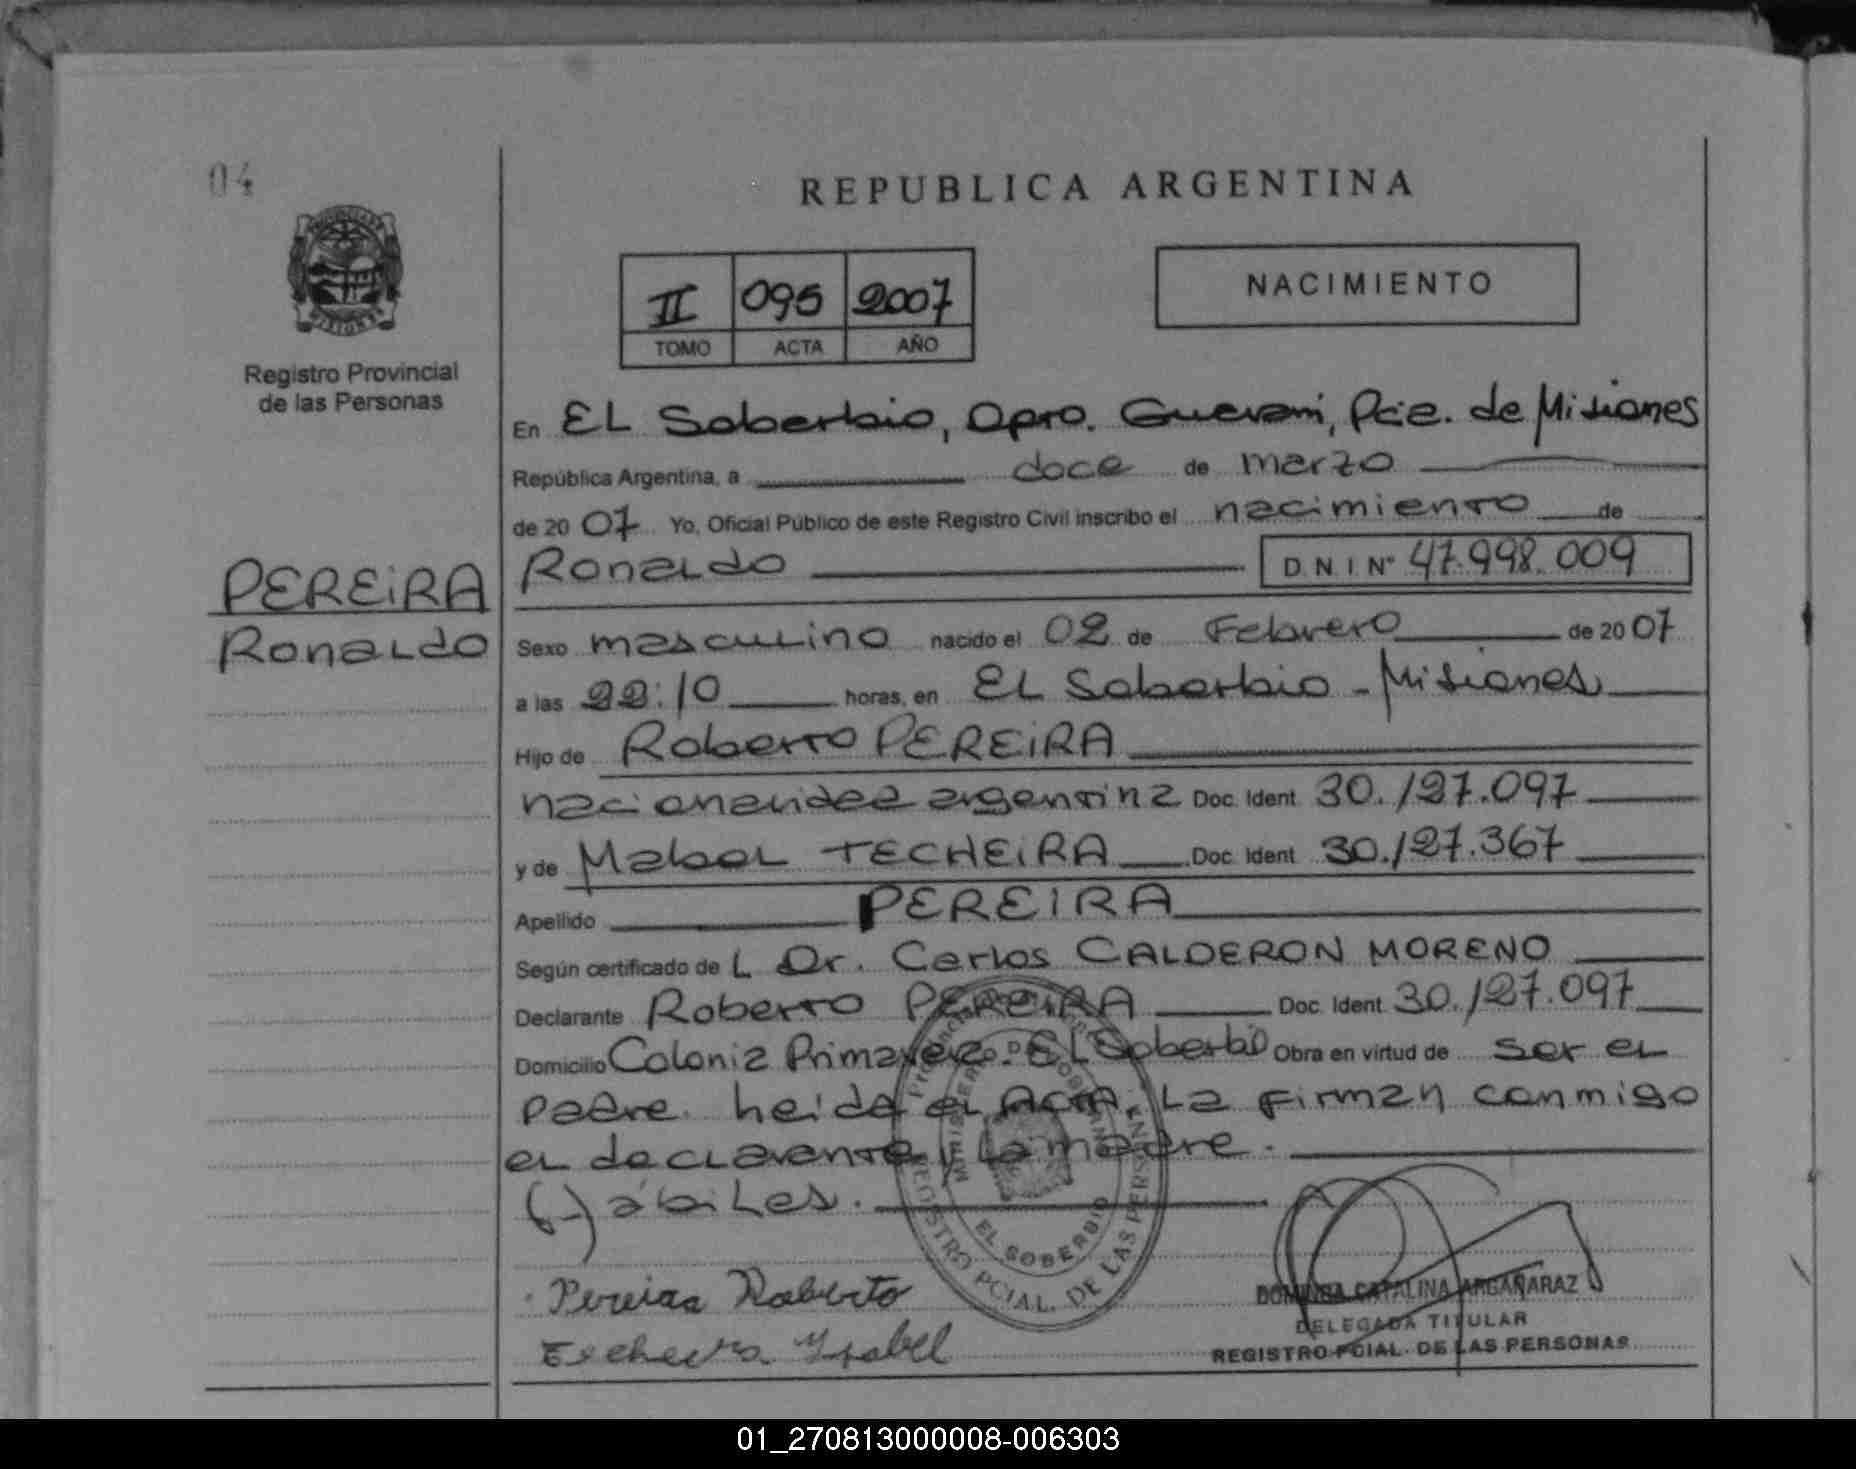 04
REPUBLICA ARGENTINA
NACIMIENTO
II 095 2007
TOMO ACTA AÑO
Registro Provincial
de las Personas
En EL Soberbio, Dpto. Guarani, Pcia. de Misiones
República Argentina, a doce de marzo
de 2007 Yo, Oficial Público de este Registro Civil inscribo el nacimiento de
PEREIRA
Ronaldo D.N.I. N° 47.998.009
Ronaldo
Sexo masculino nacido el 02 de Febrero de 2007
a las 22:10 horas, en EL Soberbio - Misiones
Hijo de Roberto PEREIRA
nacionalidad argentina Doc. Ident. 30.127.097
y de Mabel TECHEIRA Doc. Ident. 30.127.367
Apellido PEREIRA
Según certificado de L Dr. Carlos CALDERON MORENO
Declarante Roberto PEREIRA Doc. Ident. 30.127.097
Domicilio Colonia Primavera. El Soberbio Obra en virtud de ser el
padre. Leida el Acta, La firman conmigo
el declarante y la madre.
(-) ábiles.
MINISTERIO DE GOBIERNO
EL SOBERBIO
REGISTRO PCIAL. DE LAS PERSONAS
Pereira Roberto
Techeira Ysabel
DOMINGA CATALINA ARGAÑARAZ
DELEGADA TITULAR
REGISTRO PCIAL. DE LAS PERSONAS
01_270813000008-006303